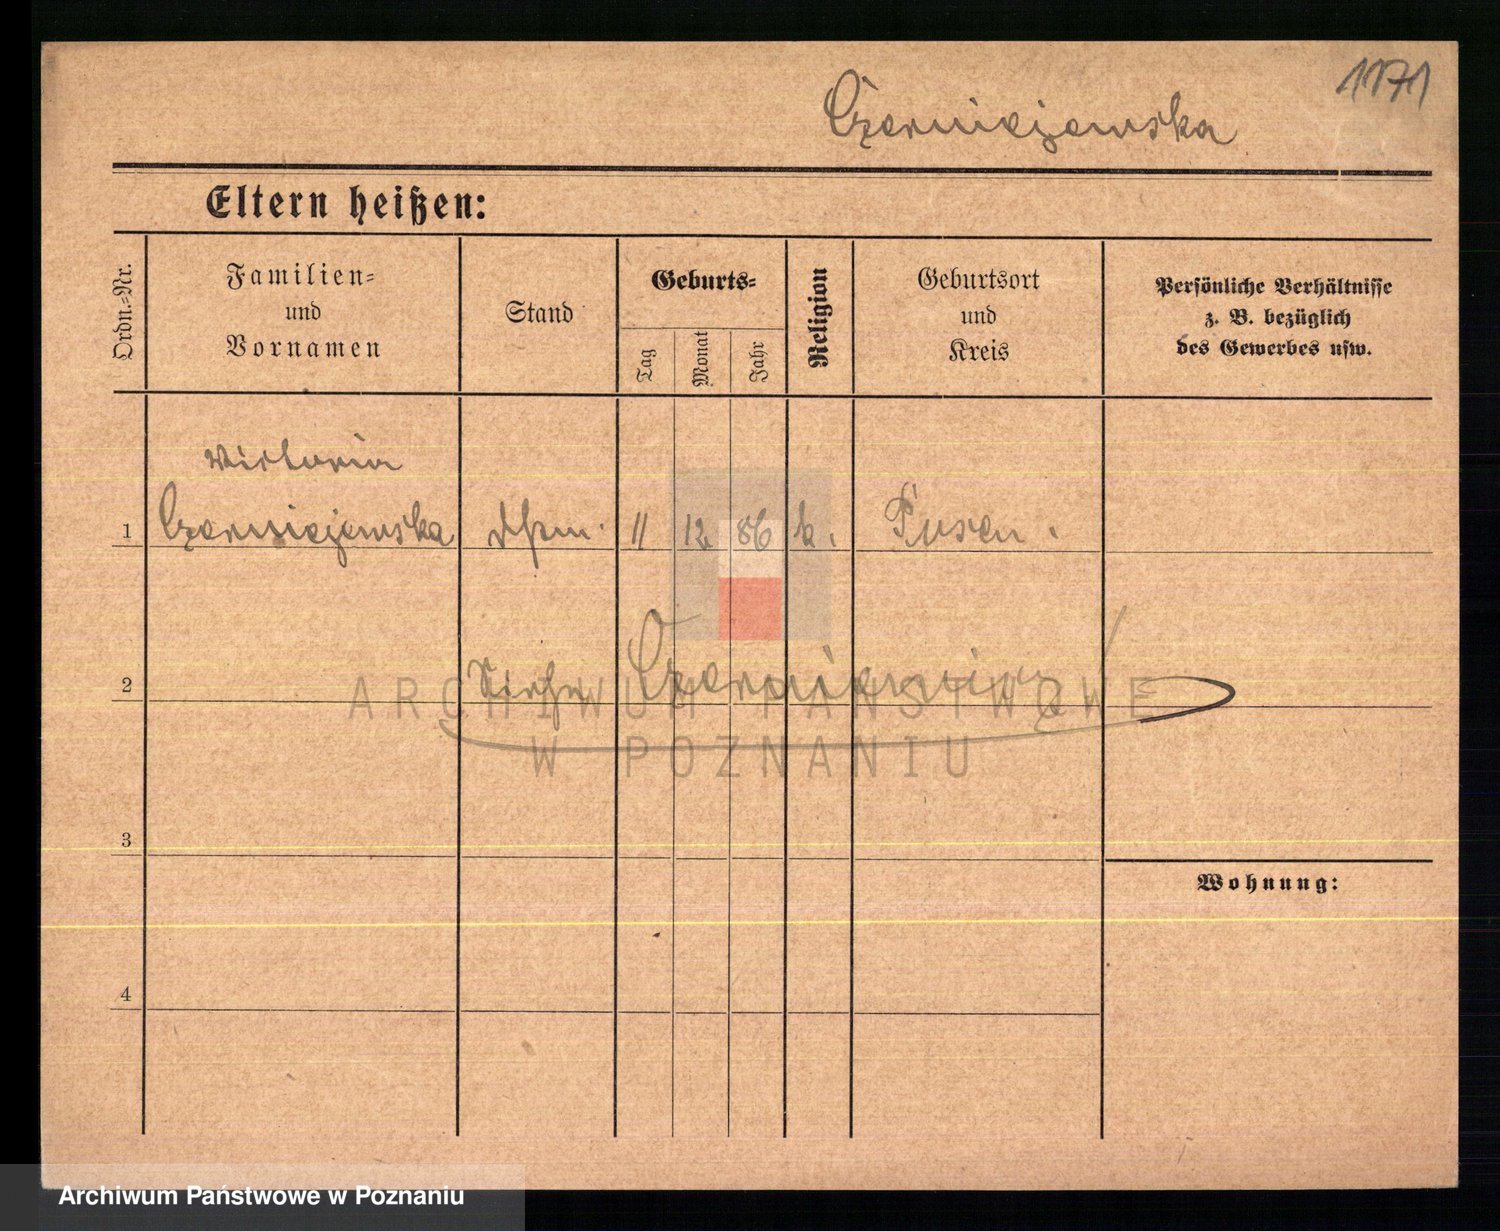 1171
Czerniejewska
Eltern heißen:
Ordn.-Nr.
Familien-
und
Vornamen
Stand
Geburts-
Tag
Monat
Jahr
Religion
Geburtsort
und
Kreis
Persönliche Verhältnisse
z. B. bezüglich
des Gewerbes usw.
Victoria
1 Czerniejewska 11 12 86 k. Posen.
2 Siehe
3
Wohnung:
4
ARCHIWUM PAŃSTWOWE
W POZNANIU
Archiwum Państwowe w Poznaniu